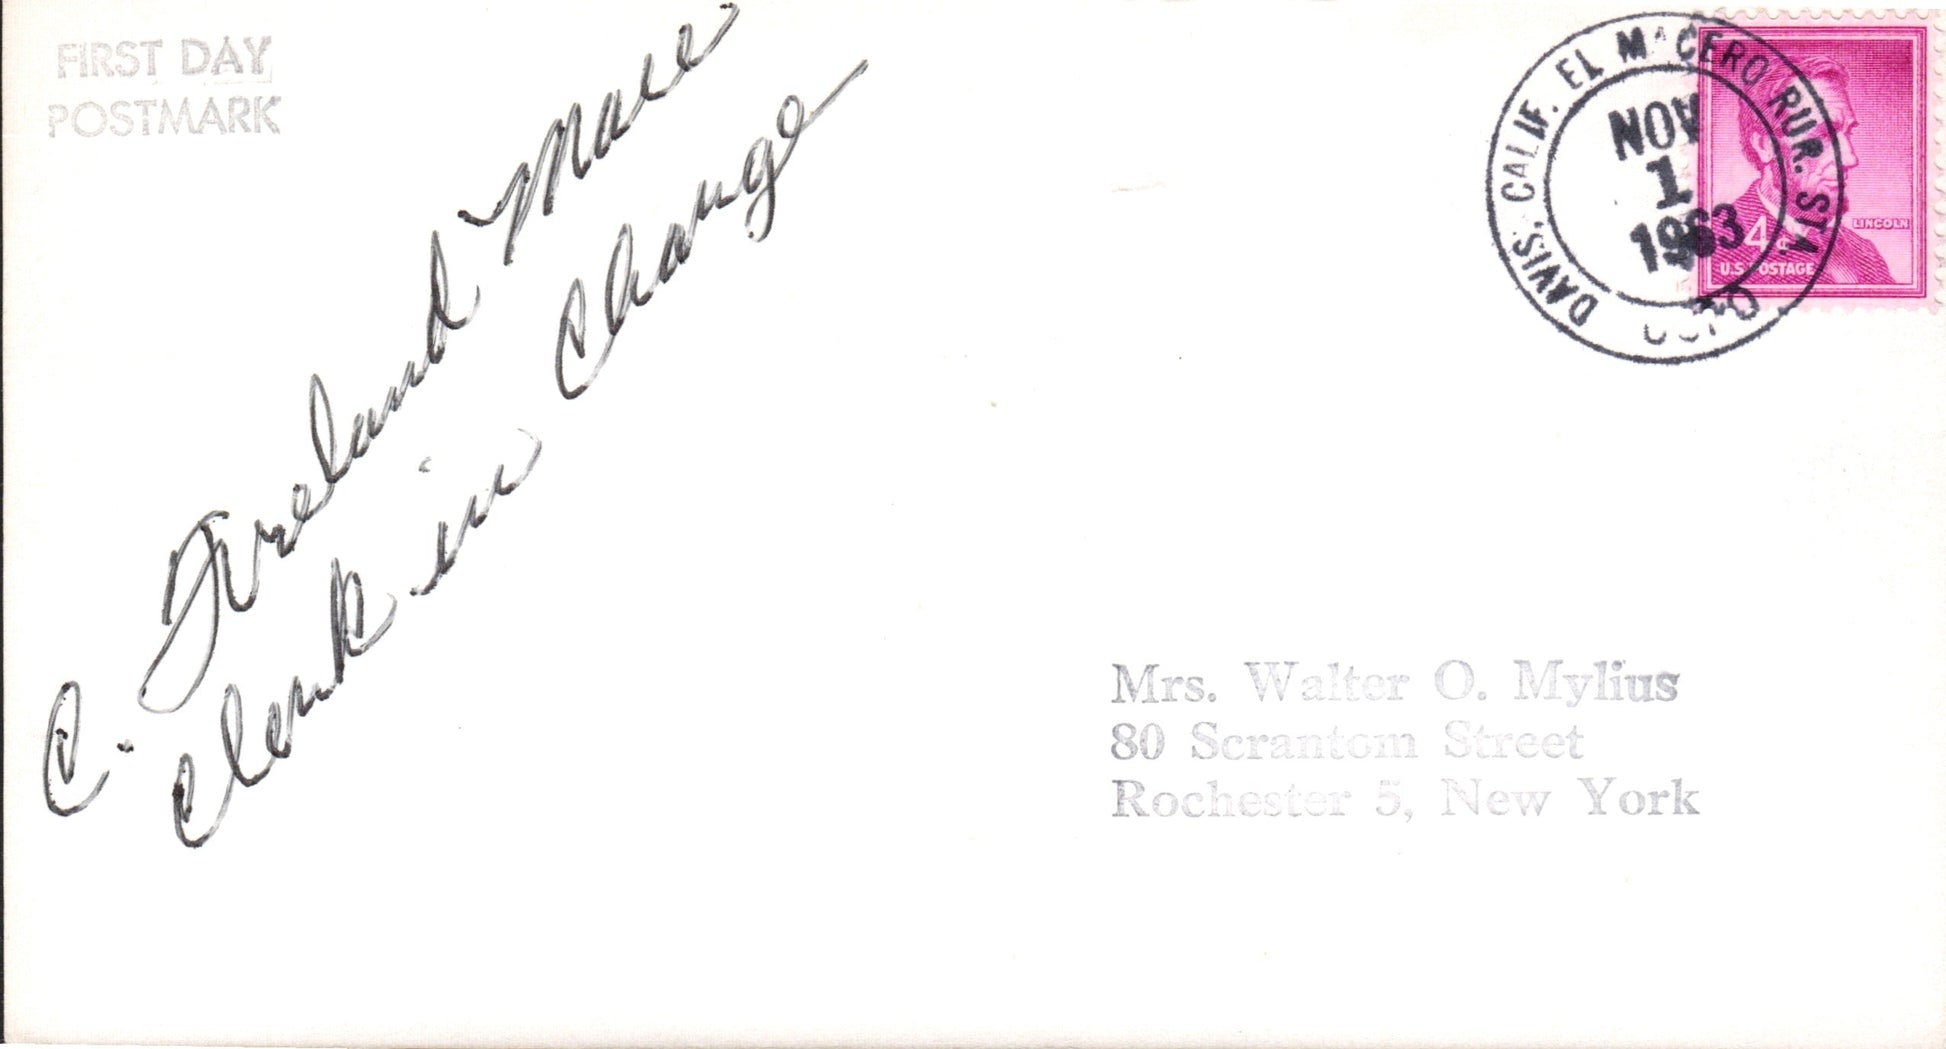 FIRST DAY
POSTMARK
C. Ireland Mace
Clerk in Charge
DAVIS, CALIF. EL MACERO RUR. STA.
NOV
1
1963
4¢
LINCOLN
U.S. POSTAGE
Mrs. Walter O. Mylius
80 Scrantom Street
Rochester 5, New York